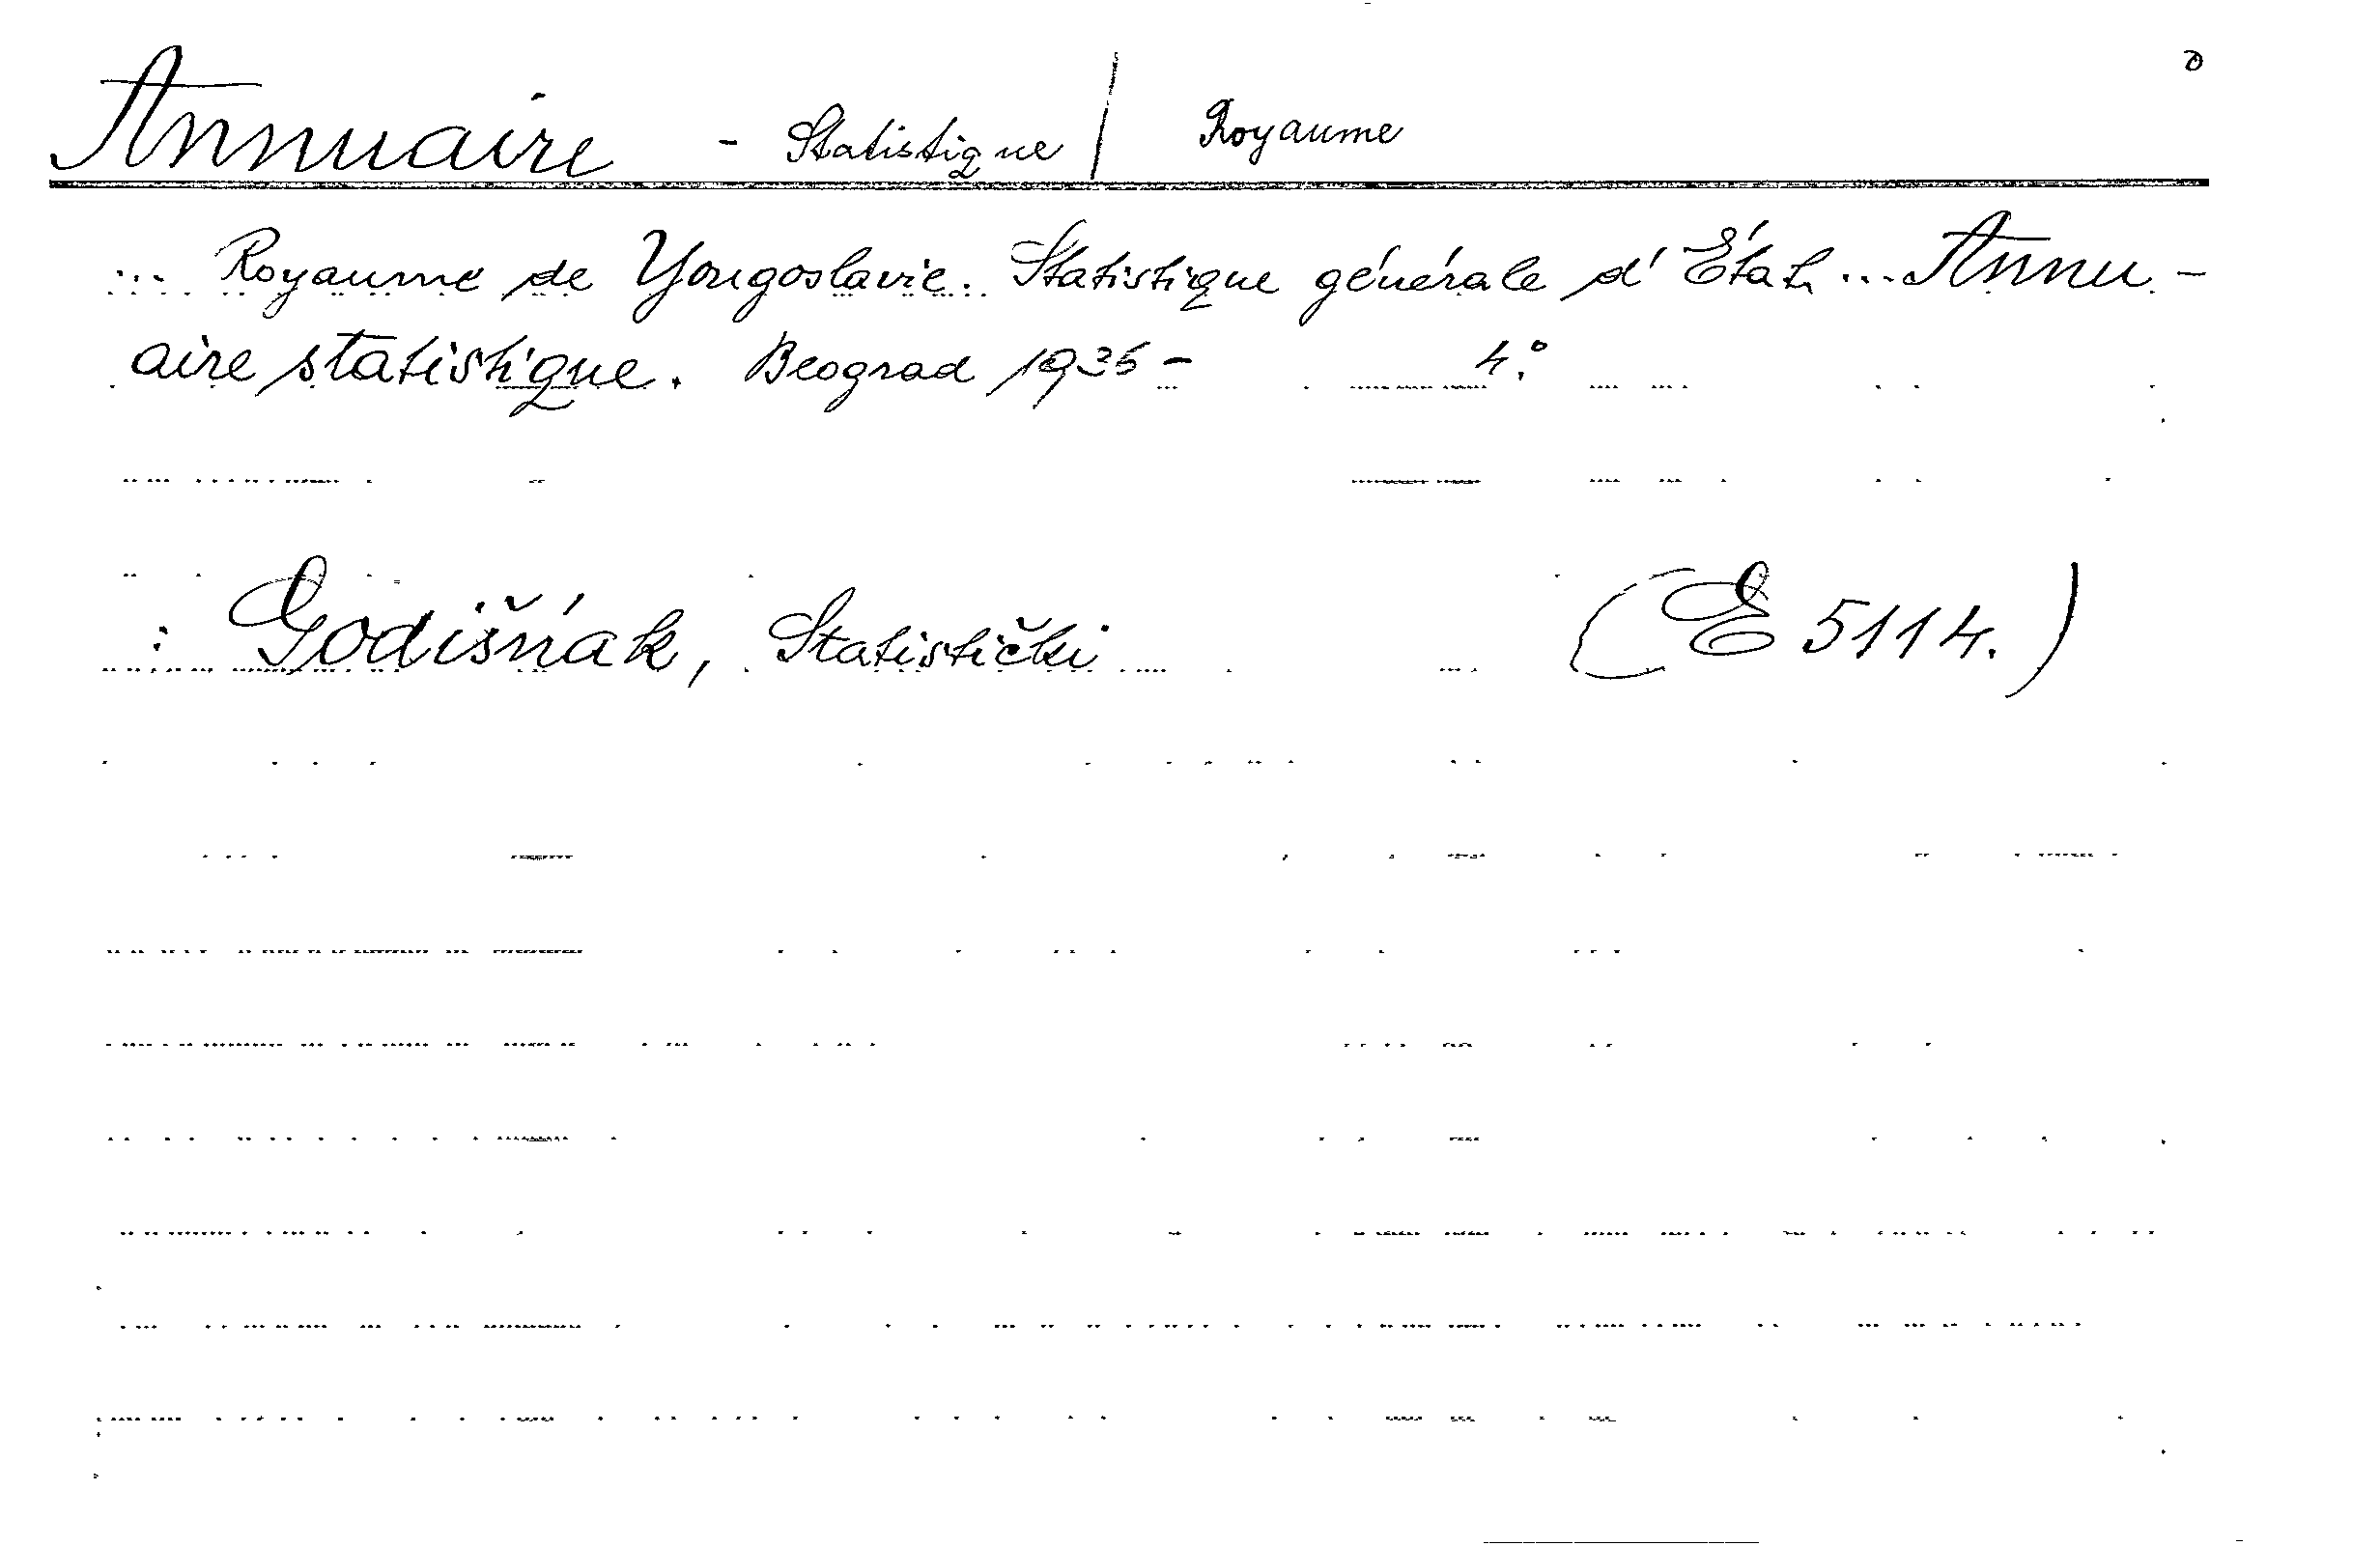 Annuaire - Statistique / Royaume
... Royaume de Yougoslavie. Statistique générale d'État ... Annu-
aire statistique. Beograd 1935 - 4°.
: Godišńak, Statistički (E 5114.)